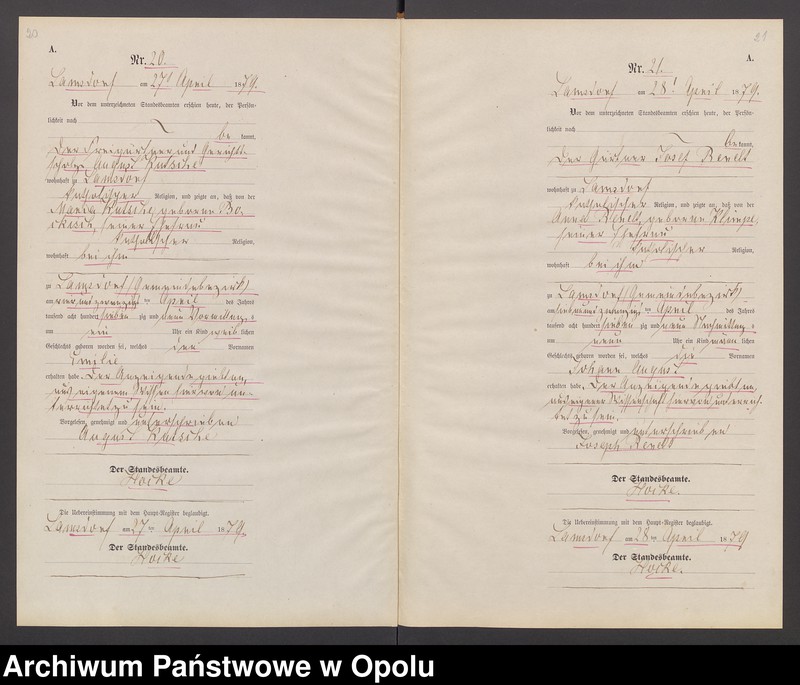 20
A.
Nr. 20.
Lamsdorf am 27ᵗ April 1879.
Vor dem unterzeichneten Standesbeamten erschien heute, der Persön-
lichkeit nach
be kannt,
der Freigärtner und Gericht-
scholze August Kutsche
wohnhaft zu Lamsdorf
katholischer Religion, und zeigte an, daß von der
Maria Kutsche, geborene Bo-
ckisch, seiner Ehefrau
katholischer Religion,
wohnhaft bei ihm
zu Lamsdorf (Gemeindebezirk)
am vier und zwanzigsten April des Jahres
tausend acht hundert sieben zig und neun Vormittags
um ein Uhr ein Kind weib lichen
Geschlechts geboren worden sei, welches den Vornamen
Emilie
erhalten habe. Der Anzeigende giebt an,
aus eigenem Wissen hiervon un-
terrichtet zu sein.
Vorgelesen, genehmigt und unterschrieben
August Kutsche
Der Standesbeamte.
Hocke
Die Uebereinstimmung mit dem Haupt-Register beglaubigt.
Lamsdorf am 27ten April 1879.
Der Standesbeamte.
Hocke
21
A.
Nr. 21.
Lamsdorf am 28ᵗ April 1879.
Vor dem unterzeichneten Standesbeamten erschien heute, der Persön-
lichkeit nach
be kannt,
der Gärtner Josef Rendt
wohnhaft zu Lamsdorf
katholischer Religion, und zeigte an, daß von der
Rendt, geborene Klimpe,
seiner Ehefrau
katholischer Religion,
wohnhaft bei ihm
zu Lamsdorf (Gemeindebezirk)
am und zwanzigsten April des Jahres
tausend acht hundert sieben zig und neun Nachmittags
um neun Uhr ein Kind männ lichen
Geschlechts geboren worden sei, welches die Vornamen
Johann August
erhalten habe. Der Anzeigende giebt an,
aus eigener Wissenschaft hiervon unterrich-
tet zu sein.
Vorgelesen, genehmigt und unterschrieben
Joseph Rendt
Der Standesbeamte.
Hocke.
Die Uebereinstimmung mit dem Haupt-Register beglaubigt.
Lamsdorf am 28ten April 1879
Der Standesbeamte.
Hocke.
Archiwum Państwowe w Opolu